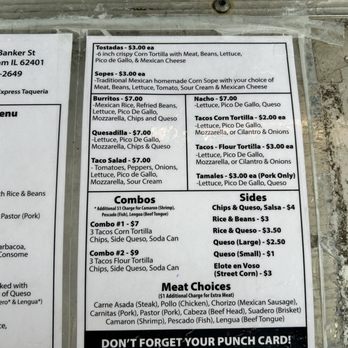 Banker St
am IL 62401
-2649
Express Taqueria
enu
ith Rice & Beans
Pastor (Pork)
arbacoa,
Consome
ked with
of Queso
ro* & Lengua*)
Tostadas - $3.00 ea
-6 inch crispy Corn Tortilla with Meat, Beans, Lettuce,
Pico de Gallo, & Mexican Cheese
Sopes - $3.00 ea
-Traditional Mexican homemade Corn Sope with your choice of
Meat, Beans, Lettuce, Tomato, Sour Cream & Mexican Cheese
Burritos - $7.00
-Mexican Rice, Refried Beans,
Lettuce, Pico De Gallo,
Mozzarella, Chips and Queso
Quesadilla - $7.00
-Lettuce, Pico De Gallo,
Mozzarella, Chips & Queso
Taco Salad - $7.00
- Tomatoes, Peppers, Onions,
Lettuce, Pico De Gallo,
Mozzarella, Sour Cream
Nacho - $7.00
-Lettuce, Pico De Gallo, Queso
Tacos Corn Tortilla - $2.00 ea
-Lettuce, Pico De Gallo,
Mozzarella, or Cilantro & Onions
Tacos - Flour Tortilla - $3.00
-Lettuce, Pico De Gallo,
Mozzarella, or Cilantro & Onions
Tamales - $3.00 ea (Pork Only)
-Lettuce, Pico De Gallo, Queso
Combos
* Additional $1 Charge for Camaron (Shrimp),
Pescado (Fish), Lengua (Beef Tongue)
Combo #1 - $7
3 Tacos Corn Tortilla
Chips, Side Queso, Soda Can
Combo #2 - $9
3 Tacos Flour Tortilla
Chips, Side Queso, Soda Can
Sides
Chips & Queso, Salsa - $4
Rice & Beans - $3
Rice & Queso - $3.50
Queso (Large) - $2.50
Queso (Small) - $1
Elote en Voso
(Street Corn) - $3
Meat Choices
($1 Additional Charge for Extra Meat)
Carne Asada (Steak), Pollo (Chicken), Chorizo (Mexican Sausage),
Carnitas (Pork), Pastor (Pork), Cabeza (Beef Head), Suadero (Brisket)
Camaron (Shrimp), Pescado (Fish), Lengua (Beef Tongue)
DON'T FORGET YOUR PUNCH CARD!